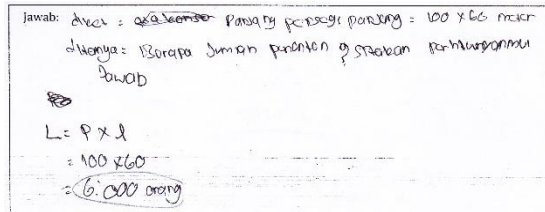 Jawab: diket : Panjang persegi panjang = 100 x 60 meter
ditanya : Berapa Jumlah penonton
Jawab
L = P x l
= 100 x 60
= 6.000 orang